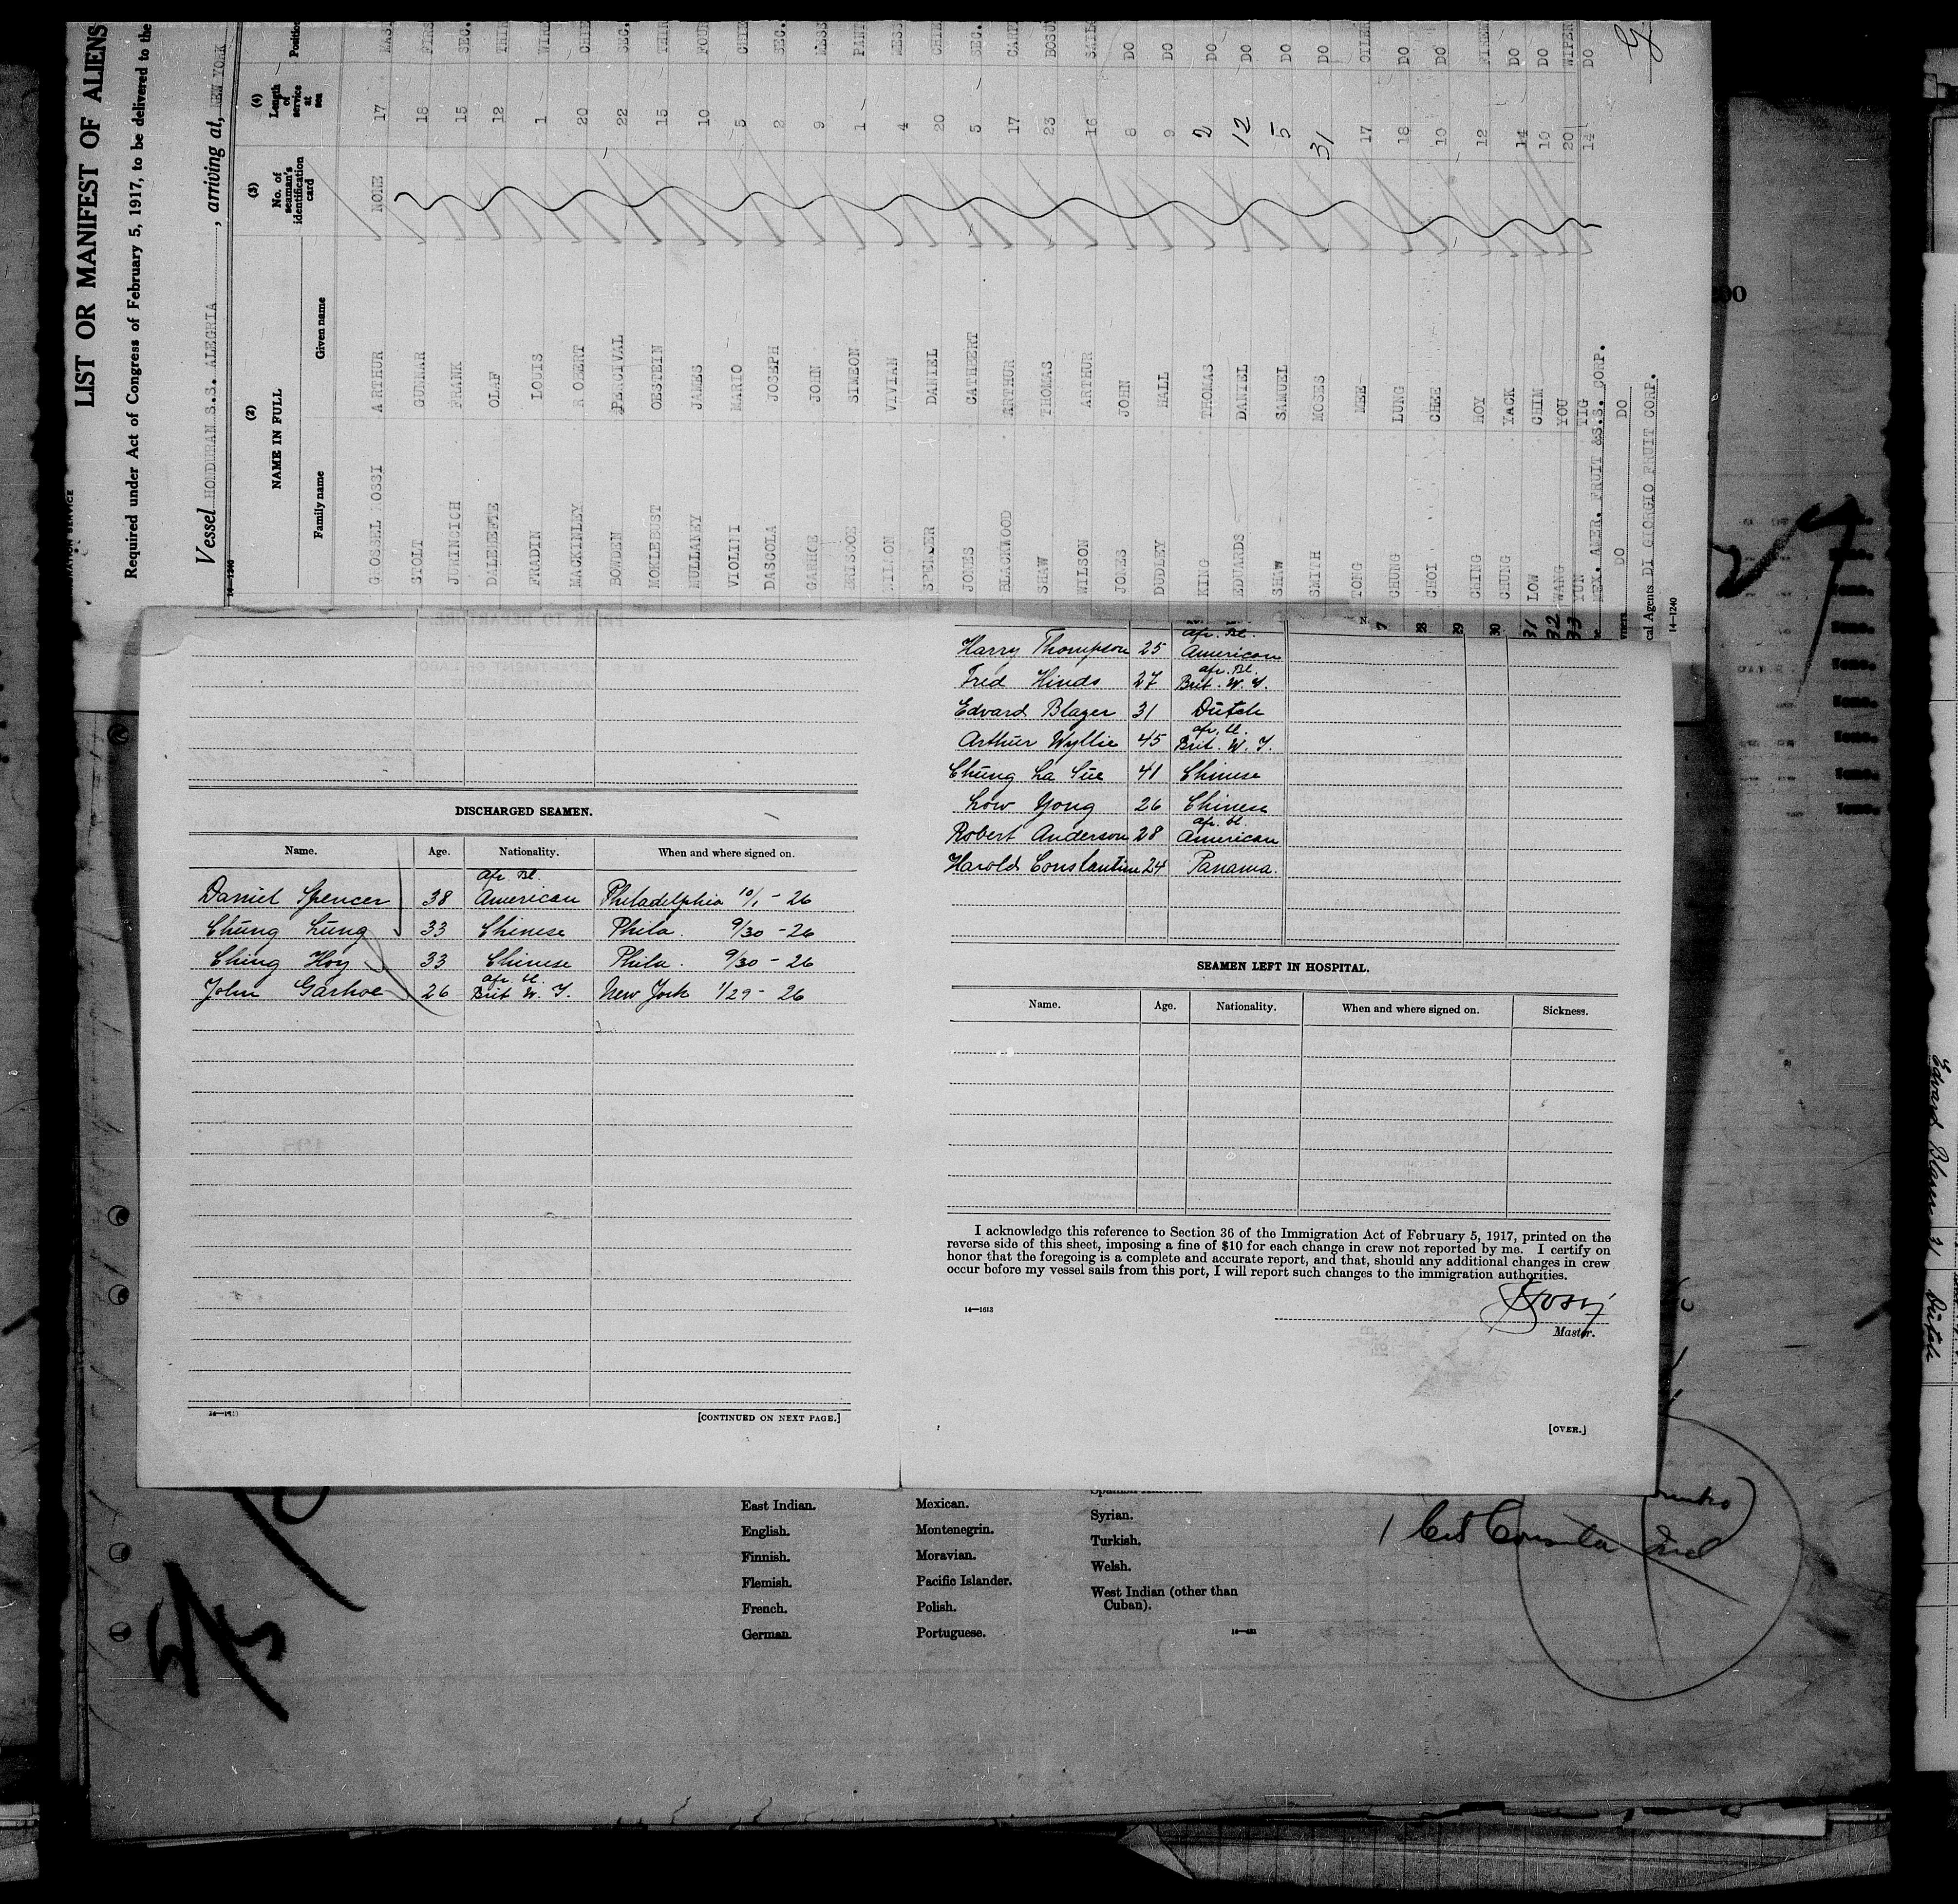 LIST OR MANIFEST OF ALIENS
Required under Act of Congress of February 5, 1917, to be delivered to the
Vessel HONDURAN S.S. ALEGRIA, arriving at, NEW YORK
14—1240
(2) (3) (4)
NAME IN FULL No. of seaman's identification card Length of service at sea
Family name Given name
GROSSEL ROSSI ARTHUR NONE 17
STOLT GUNNAR 18
JURINCICH FRANK 15
DALEJEFTE OLAF 12
FRADIN LOUIS 1
MACKINLEY ROBERT 20
BOWDEN PERCIVAL 22
MOKLEBUST OESTEIN 15
MULLANEY JAMES 10
VIOLINI MARIO 5
DASCOLA JOSEPH 2
GARHOE JOHN 9
SIMEON 1
VIVIAN 4
SPENCER DANIEL 20
JONES CATHBERT 5
BLACKWOOD ARTHUR 17
SHAW THOMAS 23
WILSON ARTHUR 16
JONES JOHN 8 DO
DUDLEY HALL 9 DO
KING THOMAS 2 DO
EDUARDS DANIEL 12 DO
SHAW SAMUEL 5 DO
SMITH MOSES 31 DO
TONG MEE 17 OILER
CHUNG LUNG 18 DO
28 CHOI CHEE 10 DO
29 CHING HOY 12
30 CHUNG YACK 14 DO
31 LOW CHIM 10 DO
32 WANG YOU 20 WIPER
33 YUN TIG 14 DO
MEX. AMER. FRUIT & S.S. CORP.
DO DO
cal Agents DI GIORGIO FRUIT CORP.
14—1240
DISCHARGED SEAMEN.
Name. Age. Nationality. When and where signed on.
Afr. Bl.
Daniel Spencer 38 American Philadelphia 10/1 - 26
Chung Lung 33 Chinese Phila. 9/30 - 26
Ching Hoy 33 Chinese Phila. 9/30 - 26
afr. bl.
John Garhoe 26 Brit. W. I. New York 1/29 - 26
[CONTINUED ON NEXT PAGE.]
afr. Bl.
Harry Thompson 25 American
afr. Bl.
Fred Hinds 27 Brit. W. I.
Edvard Blazer 31 Dutch
afr. bl.
Arthur Wyllie 45 Brit. W. I.
Chung La Sue 41 Chinese
Low Yong 26 Chinese
afr. bl.
Robert Anderson 28 American
Harold Constantine 24 Panama.
SEAMEN LEFT IN HOSPITAL.
Name. Age. Nationality. When and where signed on. Sickness.
I acknowledge this reference to Section 36 of the Immigration Act of February 5, 1917, printed on the
reverse side of this sheet, imposing a fine of $10 for each change in crew not reported by me. I certify on
honor that the foregoing is a complete and accurate report, and that, should any additional changes in crew
occur before my vessel sails from this port, I will report such changes to the immigration authorities.
14—1613
Master.
[OVER.]
East Indian.
English.
Finnish.
Flemish.
French.
German.
Mexican.
Montenegrin.
Moravian.
Pacific Islander.
Polish.
Portuguese.
Syrian.
Turkish.
Welsh.
West Indian (other than
Cuban).
Edvard Blazer 31 Dutch